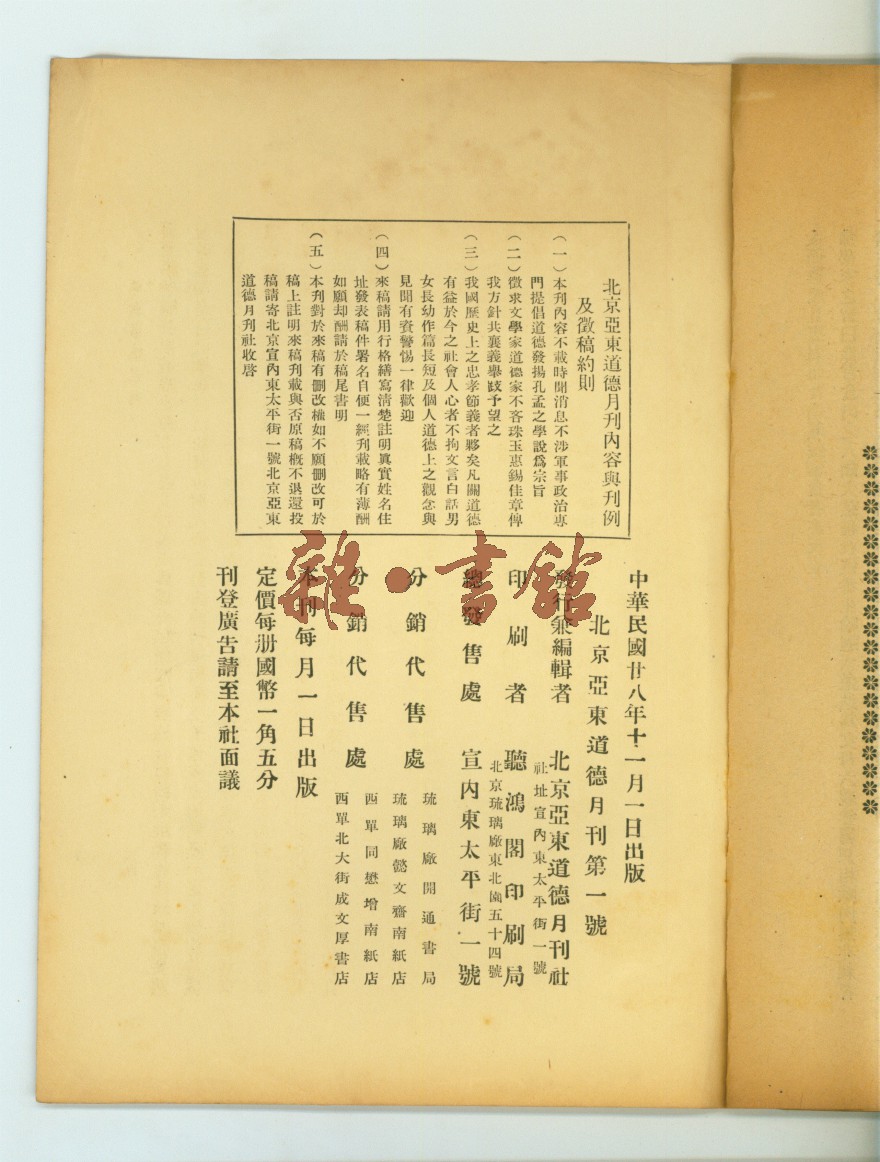 北京亞東道德月刊內容與刊例
及徵稿約則
（一）本刋內容不載時聞消息不涉軍事政治專
門提倡道德發揚孔孟之學說爲宗旨
（二）徵求文學家道德家不吝珠玉惠錫佳章俾
我方針共襄義舉跂予望之
（三）我國歷史上之忠孝節義者夥矣凡關道德
有益於今之社會人心者不拘文言白話男
女長幼作篇長短及個人道德上之觀念與
見聞有資警惕一律歡迎
（四）來稿請用行格繕寫清楚註明眞實姓名住
址發表稿件署名自便一經刋載略有薄酬
如願却酬請於稿尾書明
（五）本刋對於來稿有刪改權如不願刪改可於
稿上註明來稿刋載與否原稿概不退還投
稿請寄北京宣內東太平街一號北京亞東
道德月刋社收啓
中華民國廿八年十一月一日出版
北京亞東道德月刊第一號
發行兼編輯者　北京亞東道德月刊社
社址宣內東太平街一號
印刷者　聽鴻閣印刷局
北京琉璃廠東北園五十四號
總發售處　宣內東太平街一號
分銷代售處
琉璃廠開通書局
琉璃廠懿文齋南紙店
分銷代售處
西單同懋增南紙店
西單北大街成文厚書店
本刊每月一日出版
定價每册國幣一角五分
刊登廣告請至本社面議
雜·書館